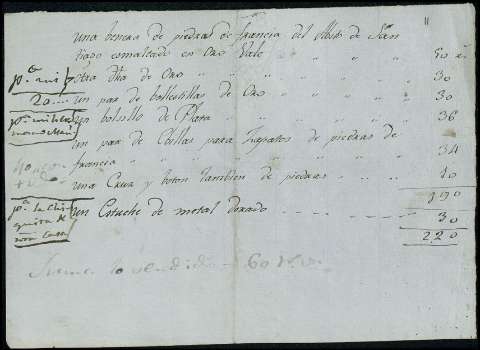 11
una benera de piedras de francia del Abito de San
tiago esmaltada en Oro Vale 50
pª mi otra dha de Oro 30
20 un par de ballestillas de Oro 30
pª mi un bolsillo de Plata 36
un par de Evillas para Zapatos de piedras de
francia 34
una Cruz y boton tambien de piedras 10
190
pª la Chi
quita de
mi Casa
un Estuche de metal dorado 30
220
Suma lo vendido 60